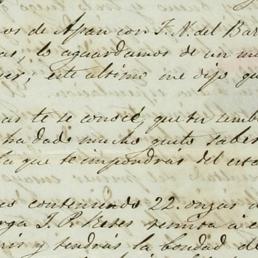 os de Apan con J. N. del Bar
as, lo aguardamos de un m
er; este ultimo me dijo qu
as te se conoce, que tu amb
ha dado mucho gusto sabe
la que te impondras del esta
conteniendo 22. onzas a
rga J. P. Reter remita a
rir y tendrás la bondad d